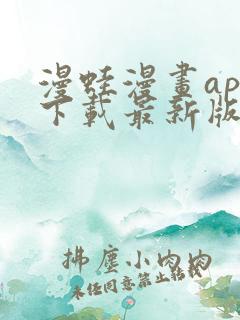 漫蛙漫畫ap
下載最新版
拂塵小肉肉
未经同意禁止转载